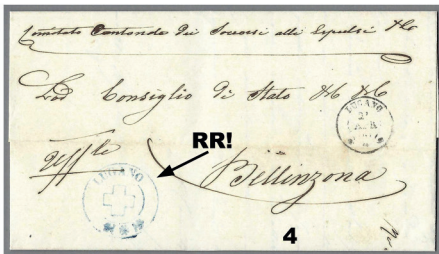 Comitato Cantonale dei Soccorsi alli Espulsi &c
Lod Consiglio di Stato &c &c
LUGANO
RR!
Uffle
LUGANO
Bellinzona
4